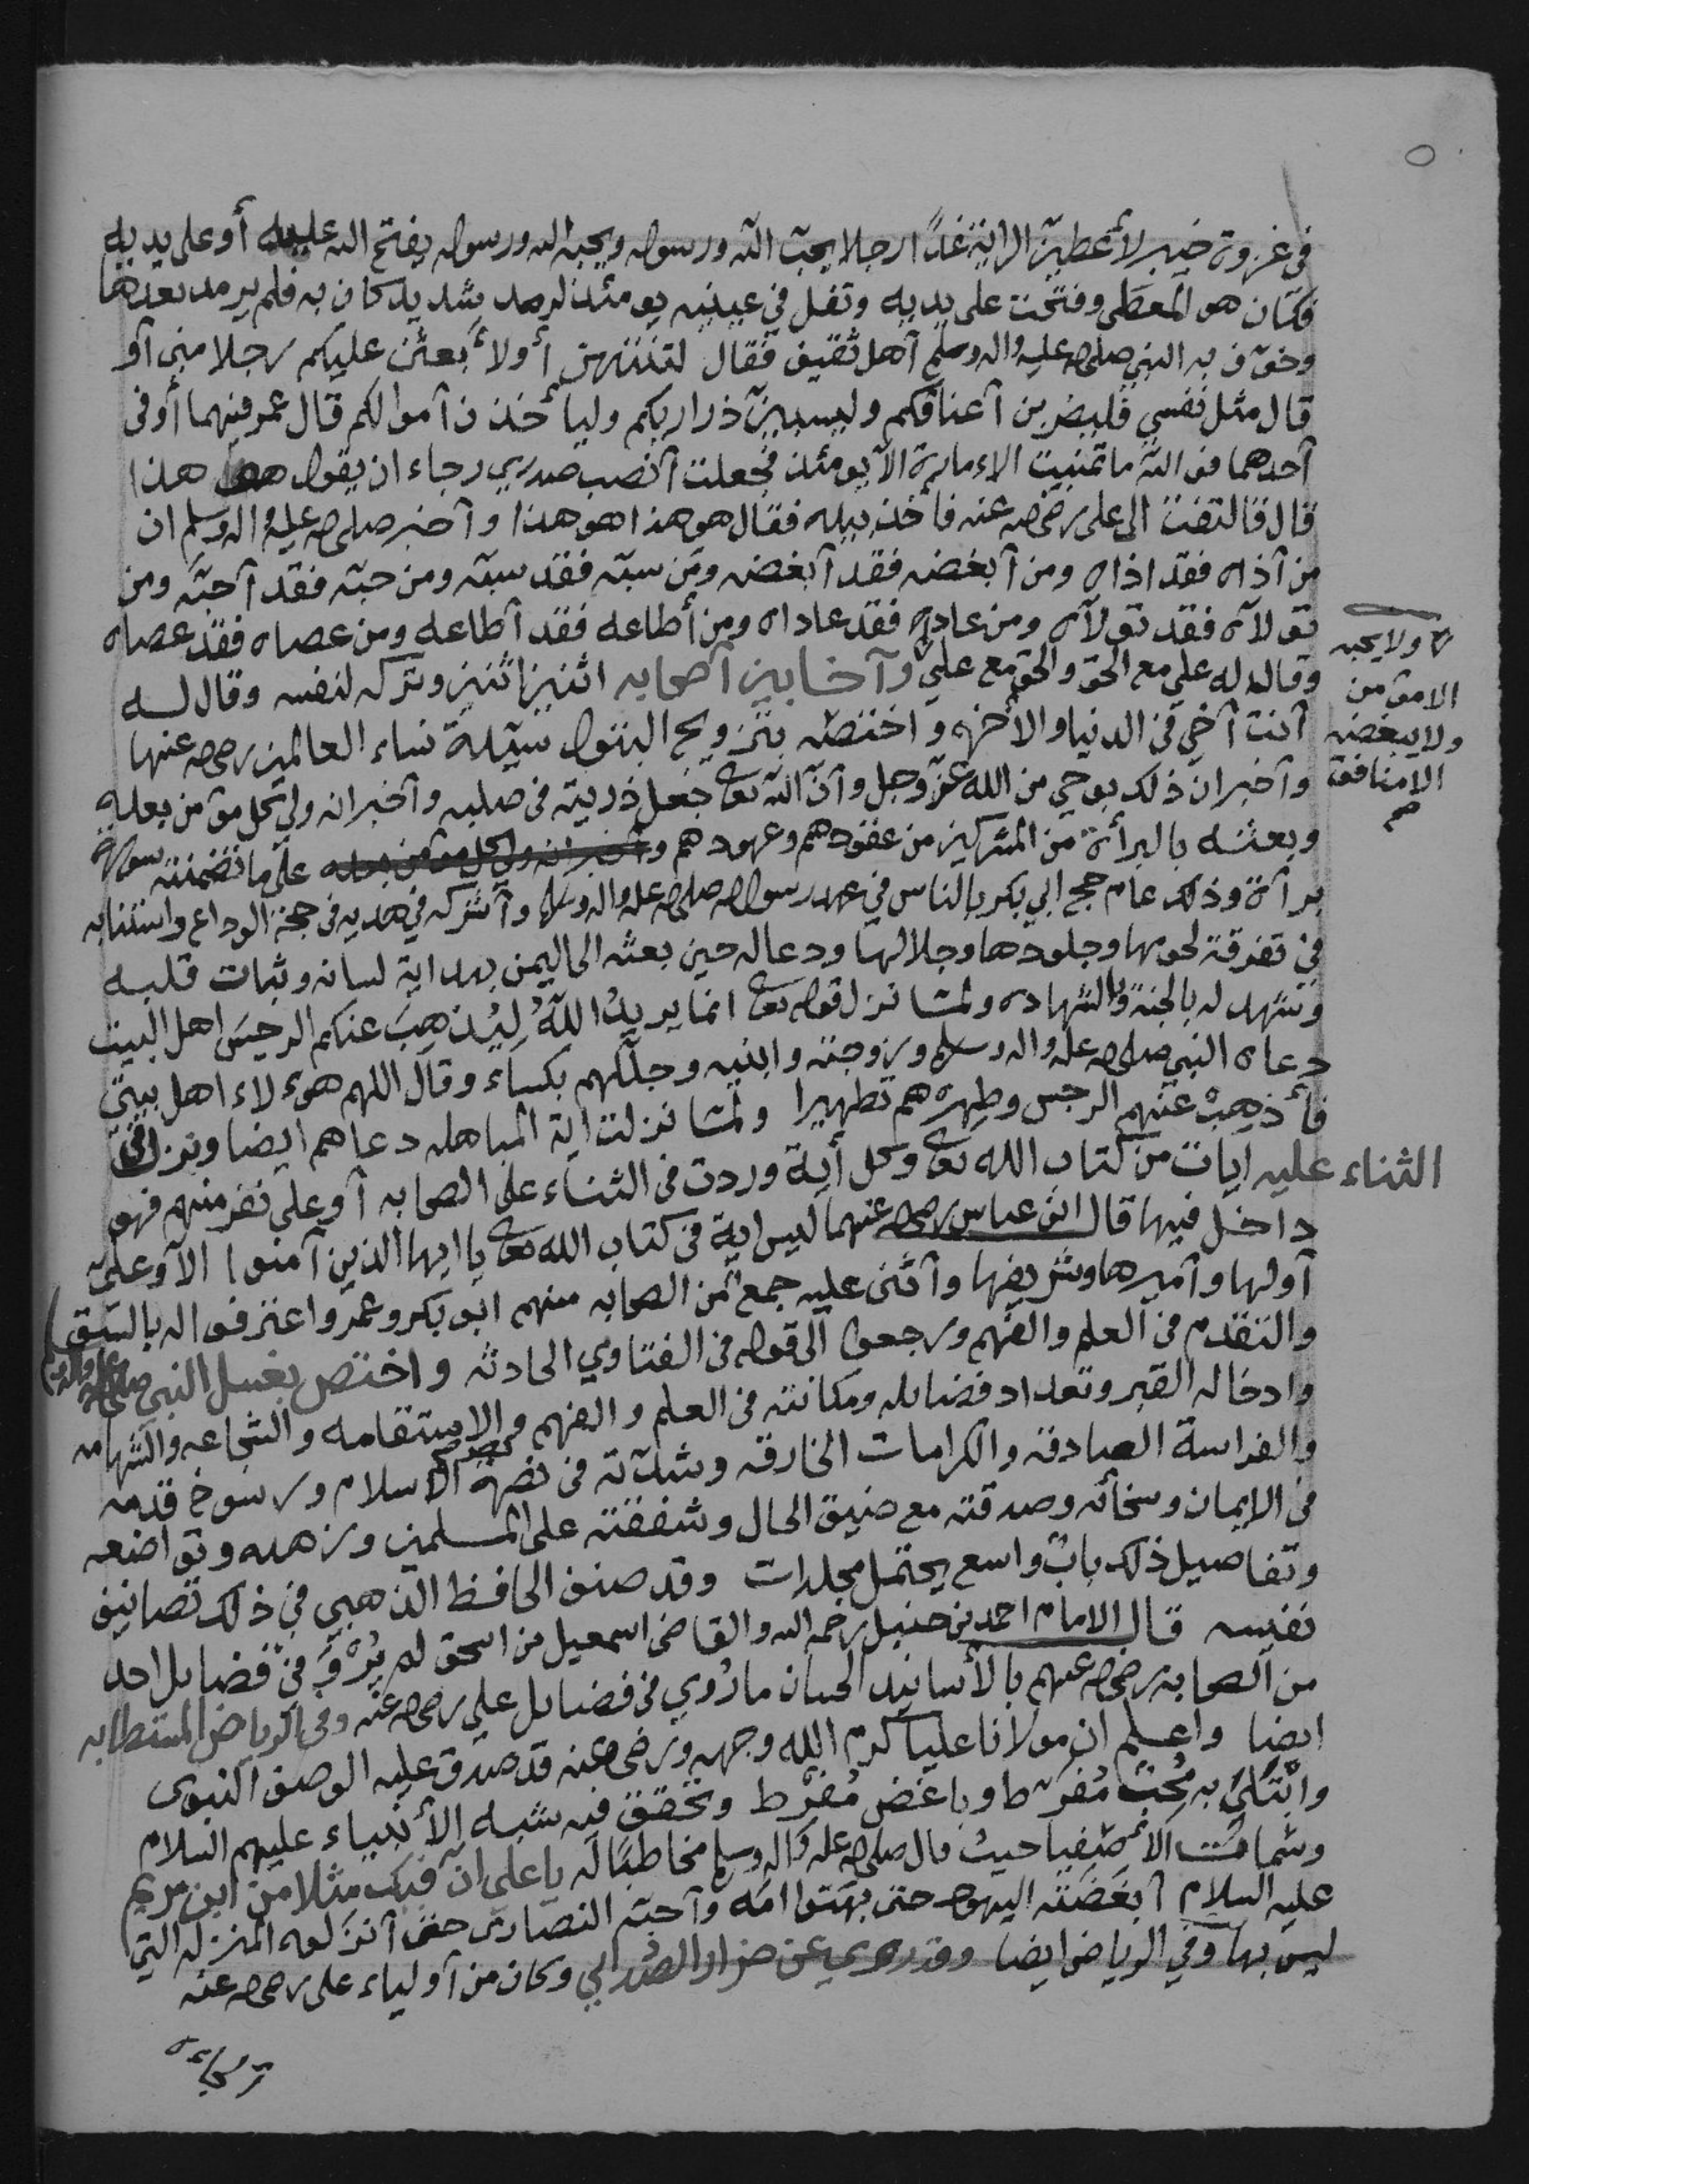 ٥
في غزوة خيبر لأعطينّ الراية غدًا رجلا يحب الله ورسوله ويحبه الله ورسوله يفتح الله عليه أو على يديه
فكان هو المعطى وفتحت على يديه وتفل في عينيه يومئذ لرمد شديد كان به فلم يرمد بعدها
وخوّف به النبي صلى الله عليه واله وسلم أهل ثقيف فقال لتنتهن أو لأبعثن عليكم رجلا مني أو
قال مثل نفسي فليضربن أعناقكم وليسبين ذراريكم وليأخذن أموالكم قال عمر فيهما أو في
أحدهما فوالله ما تمنيت الإمارة الا يومئذ فجعلت أنصب صدري رجاء ان يقول هو هذا
قال فالتفت الى علي رضي الله عنه فأخذ بيده فقال هو هذا هو هذا وأخبر صلى الله عليه واله وسلم ان
من آذاه فقد اذاه ومن أبغضه فقد أبغضه ومن سبّه فقد سبّه ومن حبّه فقد أحبّه ومن
تولاه فقد تولاه ومن عاداه فقد عاداه ومن أطاعه فقد أطاعه ومن عصاه فقد عصاه
ولا يحبه
الا مؤمن
ولا يبغضه
الا منافق
وقال له علي مع الحق والحق مع علي وآخا بين أصحابه اثنين اثنين وتركه لنفسه وقال له
أنت أخي في الدنيا والأخرة واختصه بتزويج البتول سيّدة نساء العالمين رضي الله عنها
وأخبر ان ذلك بوحي من الله عزّ وجل وأنّ الله تعالى جعل ذريته في صلبه وأخبر انه ولي كل مؤمن بعده
وبعثه بالبرأة من المشركين من عقودهم وعهودهم وأخبر انه ولي كل مؤمن بعده على ما تضمنته سورة
برآة وذلك عام حج ابي بكر بالناس في عهد رسول الله صلى الله عليه واله وسلم وأشركه في هديه في حجة الوداع واستنابه
في تفرقة لحومها وجلودها وجلالها ودعا له حين بعثه الى اليمن بهداية لسانه وثبات قلبه
وشهد له بالجنة والشهاده ولمّا نزل قوله تعالى انما يريدُ اللهُ لِيُذهِبَ عنكم الرجسَ اهل البيت
دعاه النبي صلى الله عليه واله وسلم وزوجته وابنيه وجلّلهم بكساء وقال اللهم هؤلاء اهل بيتي
فأذهِبْ عنهم الرجس وطهرهم تطهيرا ولمّا نزلت اية المباهله دعاهم ايضا ونزل في
الثناء عليه ايات من كتاب الله تعالى وكل أية وردت في الثناء على الصحابه أو على نفر منهم فهو
داخل فيها قال ابن عباس رضي الله عنهما ليس اية في كتاب الله تعالى يا ايها الذين آمنوا الا وعلي
أولها وأميرها وشريفها وأثنى عليه جمع من الصحابه منهم ابو بكر وعمر واعترفوا له بالسبق
والتقدم في العلم والفهم ورجعوا الى قوله في الفتاوي الحادثه واختص بغسل النبي صلى الله عليه واله وسلم
وادخاله القبر وتعداد فضايله ومكانته في العلم والفهم والاستقامه والشجاعه والشهامه
والفراسة الصادقه والكرامات الخارقه وشدّته في نصرة الاسلام ورسوخ قدمه
في الإيمان وسخائه وصدقته مع ضيق الحال وشفقته على المسلمين وزهده وتواضعه
وتفاصيل ذلك بابٌ واسع يحتمل مجلدات وقد صنف الحافظ الذهبي في ذلك تصانيف
نفيسه قال الامام احمد بن حنبل رحمه الله والقاضي اسمعيل بن اسحق لم يُرْوَ في فضايل احد
من الصحابه رضي الله عنهم بالأسانيد الحسان ما رُوي في فضايل علي رضي الله عنه وفي الرياض المستطابه
ايضا واعلم ان مولانا عليا كرم الله وجهه ورضي الله عنه قد صدق عليه الوصف النبوي
وابتُلِيَ به مُحِبٌّ مُفرِط وباغض مُفرِّط وتحقق فيه شبه الأنبياء عليهم السلام
حيث قال صلى الله عليه واله وسلم مخاطبًا له يا علي انّ فيك مثلا من ابن مريم
عليه السلام أبغضَتْه اليهود حتى بهَتوا امّه وأحبّه النصارى حتى أنزلوه المنزله التي
ليس بها وفي الرياض ايضا وقد روي عن ضرار الصُّدائي وكان من أولياء علي رضي الله عنه